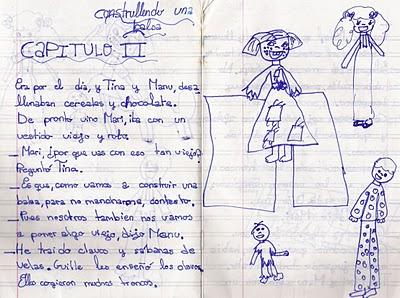 construllendo una
balsa
CAPITULO II
Era por el día, y Tina y Manu, desa
llunaban cereales y chocolate.
De pronto vino Mari, iba con un
vestido viejo y roto.
_Mari, ¿por que vas con eso tan viejo?
Pregunto Tina.
_Es que, como vamos a construir una
balsa, para no mancharme, contesto.
_Pues nosotros tambien nos vamos
a poner algo viejo, dijo Manu.
_He traido clavos y sabanas de
velas. Guille les enseñó los clavos.
Ellos cogieron muchos troncos.